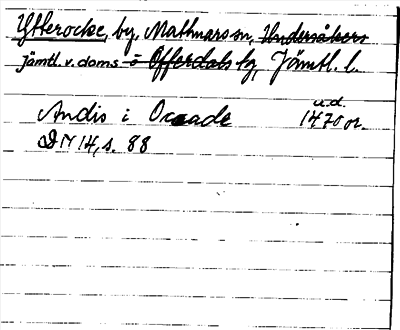 Ytterocke, by, Mattmars sn, Undersåkers
Jämtl. v. doms- o Offerdals tg, Jämtl. l.
u.d.
Andis i Ocaade 1470 or.
DN 14, s. 88